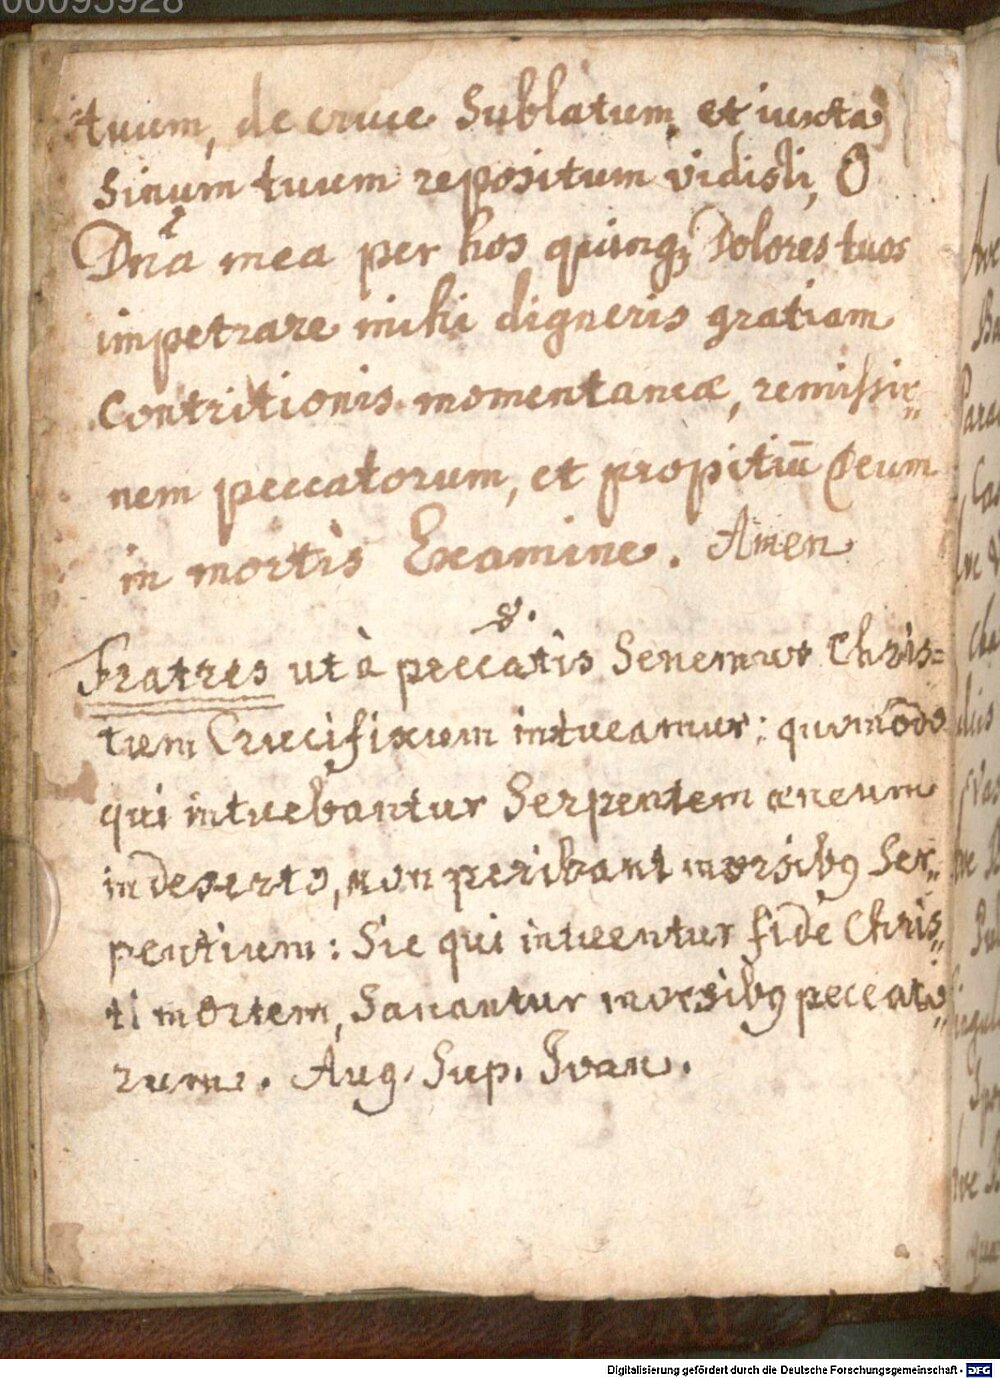 00095928
tuum, de cruce Sublatum, et iuxta
Sinum tuum repositum vidisti, O
Dña mea per hos quinq; Dolores tuos
impetrare mihi digneris gratiam
Contritionis momentaneæ, remissio„
nem peccatorum, et propitiū Deum
in mortis Examine. Amen
Fratres ut à peccatis Senemur Chris=
tum Crucifixum intueamur: quomodo
qui intuebantur Serpentem æneum
in deserto, non peribant morsibꝰ Ser„
pentium: Sic qui intuentur fide Chris„
ti mortem, Sanantur morsibꝰ peccato„
rum. Aug. Sup. Ioan.
Digitalisierung gefördert durch die Deutsche Forschungsgemeinschaft - DFG